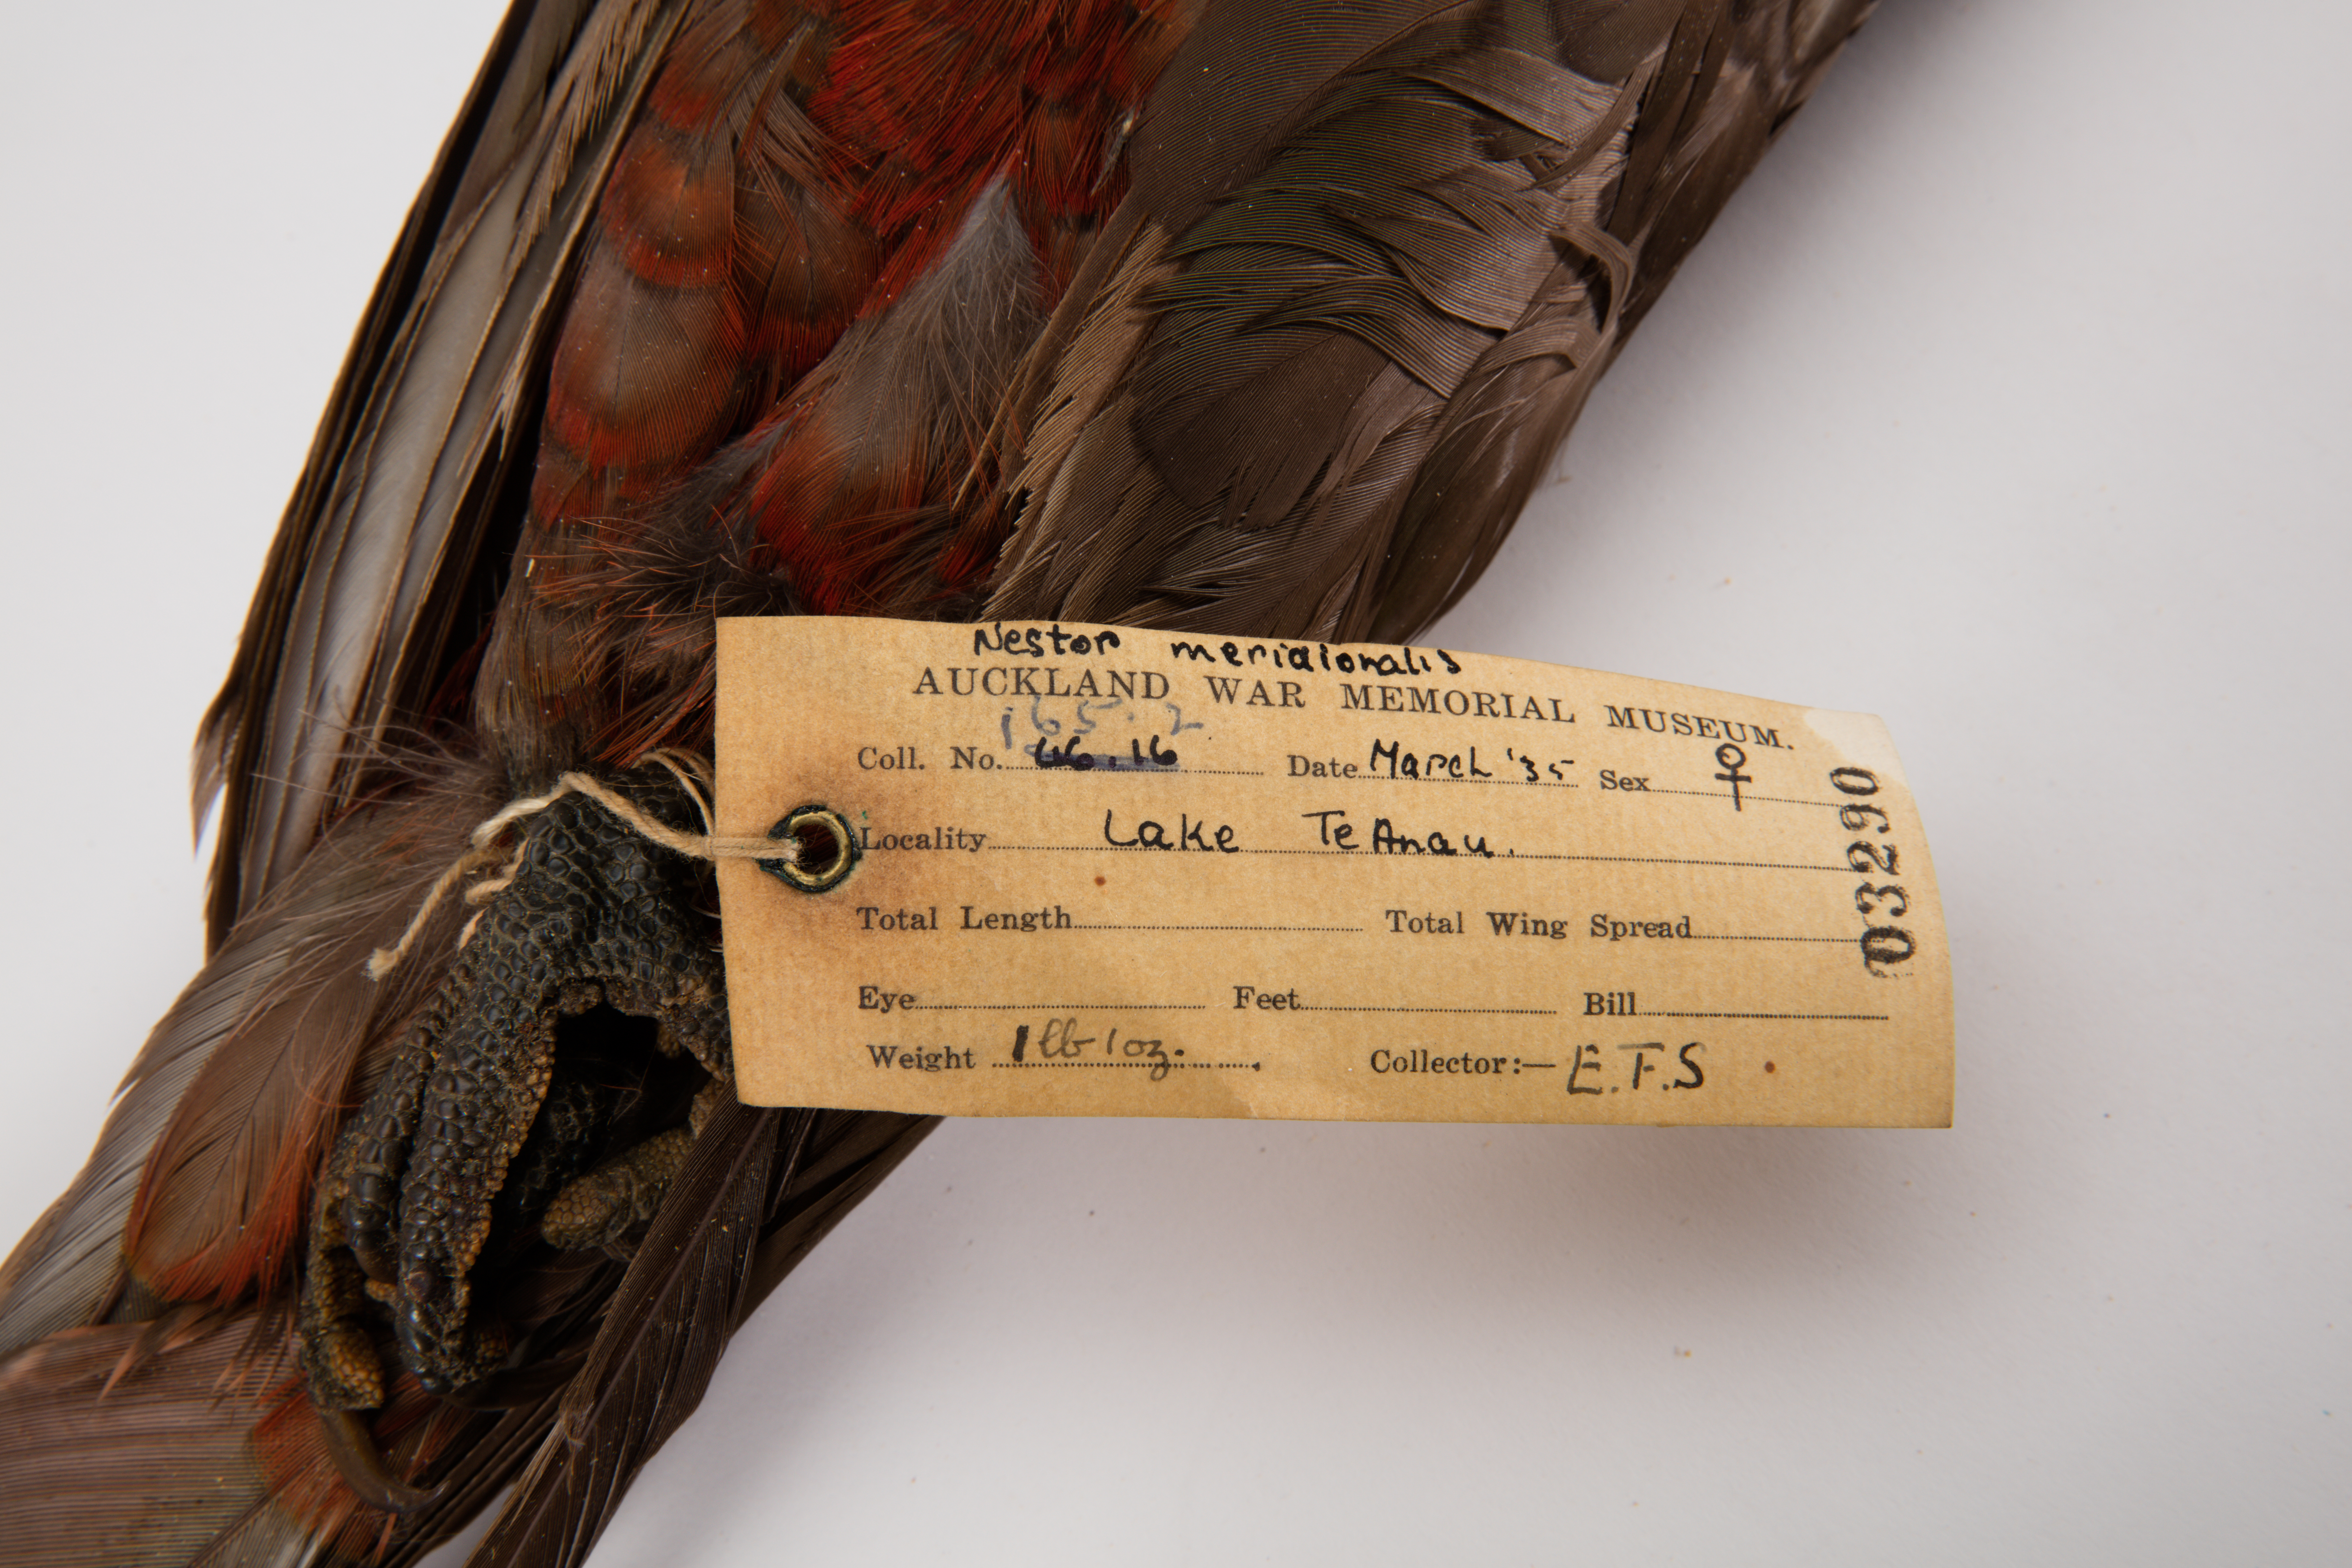 Nestor meridionalis
AUCKLAND WAR MEMORIAL MUSEUM.
165.2
Coll. No. 46.16 Date March '35 Sex ♀
Locality Lake Te Anau.
Total Length Total Wing Spread
Eye Feet Bill
Weight 1 lb 1 oz. Collector:— E.F.S
03290